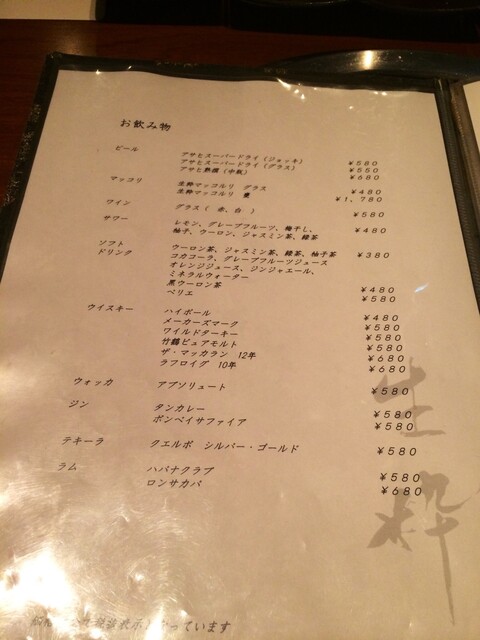 お飲み物
ビール アサヒスーパードライ（ジョッキ） ￥580
アサヒスーパードライ（グラス） ￥550
アサヒ熟撰（中瓶） ￥680
マッコリ 生粋マッコルリ グラス ￥480
生粋マッコルリ 甕 ￥1,780
ワイン グラス（ 赤、白 ） ￥580
サワー レモン、グレープフルーツ、梅干し、 ￥480
柚子、ウーロン、ジャスミン茶、緑茶
ソフト ウーロン茶、ジャスミン茶、緑茶、柚子茶 ￥380
ドリンク コカコーラ、グレープフルーツジュース
オレンジジュース、ジンジャエール、
ミネラルウォーター
黒ウーロン茶 ￥480
ペリエ ￥580
ウイスキー ハイボール ￥480
メーカーズマーク ￥580
ワイルドターキー ￥580
竹鶴ピュアモルト ￥580
ザ・マッカラン 12年 ￥680
ラフロイグ 10年 ￥680
ウォッカ アブソリュート ￥580
ジン タンカレー ￥580
ボンベイサファイア ￥580
テキーラ クエルボ シルバー・ゴールド ￥580
ラム ハバナクラブ ￥580
ロンサカパ ￥680
生粋
表示となっています